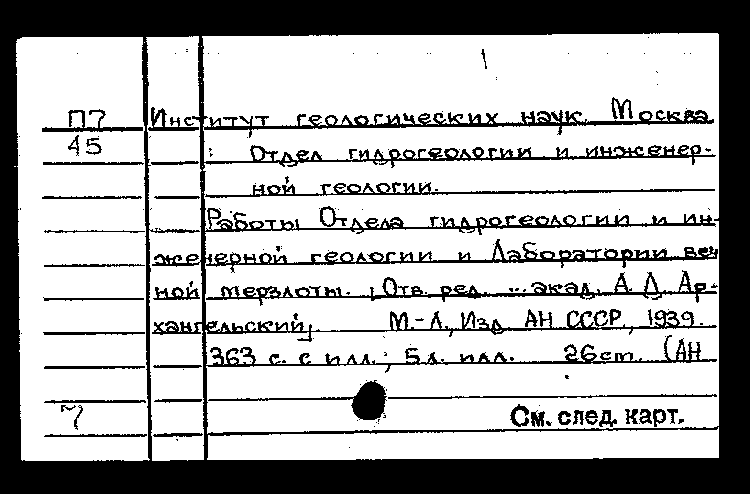 П7 Институт геологических наук. Москва
45 : Отдел гидрогеологии и инженер-
ной геологии.
Работы Отдела гидрогеологии и ин-
женерной геологии и Лаборатории веч
ной мерзлоты. [Отв. ред. ... акад. А. Д. Ар-
хангельский]. М.-Л., Изд. АН СССР, 1939.
363 с. с илл.; 5 л. илл. 26 cm. (АН
См. след. карт.